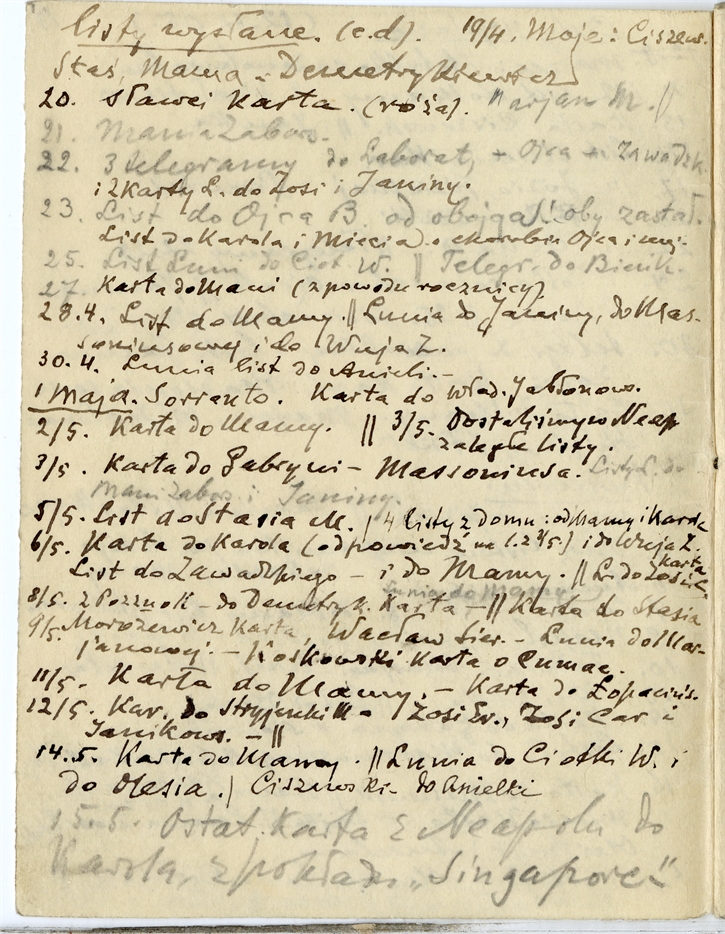 listy wysłane. (c.d). 19/4. Moje: Ciszew.
Staś, Mama - Demetrykiewicz
20. Sławci Karta. (róża). "arjan M. //
21. Mania Zabor.
22. 3 telegramy do Laborat, + Ojca + Zawadzk.
i 2 karty L. do Zosi i Janiny.
23. List do Ojca B. od obojga oby zastał.
List do Karola i Miecia o chorobie Ojca i
25. List Luni do Ciot W. || Telegr. do Bienk.
27. Karta do Mani (z powodu rocznicy)
28.4. List do Mamy. || Lunia do Janiny, do Mas-
soniusowej i do Wuja Z.
30.4. Lunia list do Anieli. -
1 Maja. Sorrento. Karta do Wład. Jabłonow.
2/5. Karta do Mamy. || 3/5. Dostaliśmy w Neap
zaległe listy.
3/5. Karta do Gabryni - Massoniusa. Listy L. do
Mani Zabor. i Janiny.
5/5. List do Stasia M. / 4 listy z domu: od Mamy i Karola
6/5. Karta do Karola (odpowiedź na l. 2/5.) i do Wuja Z.
List do Zawadzkiego - i do Mamy. || L. do Zosi C. karta
Lunia do Mamy
8/5. do Demetryk. Karta - || Karta do Stasia
9/5. Morozewicz Karta, Wacław Sier. - Lunia do Mar-
janowej. - Koskowski Karta o
11/5. Karta do Mamy. - Karta do Łopacińs.
12/5. Kar. do Stryjeński - Zosi Św., Zosi Car i
Janikows. - ||
14.5. Karta do Mamy. || Lunia do Ciotki W. i
do Olesia. | Ciszewski - do Anielki
15.5. Ostat. Karta z Neapolu do
Karola, z pokładu „Singapore"